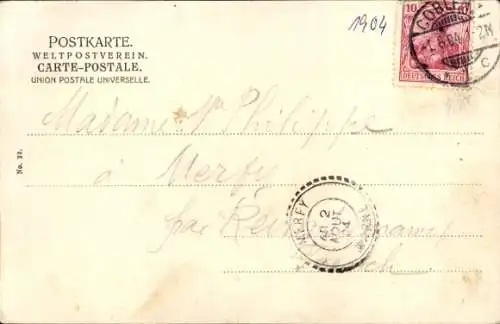 1904
POSTKARTE.
WELTPOSTVEREIN.
CARTE-POSTALE.
UNION POSTALE UNIVERSELLE.
10
DEUTSCHES REICH
COBLENZ
1.8.04.
C
Madame Philippe
à Merfy
par Reims
No. 32.
MERFY
2
AOUT
04